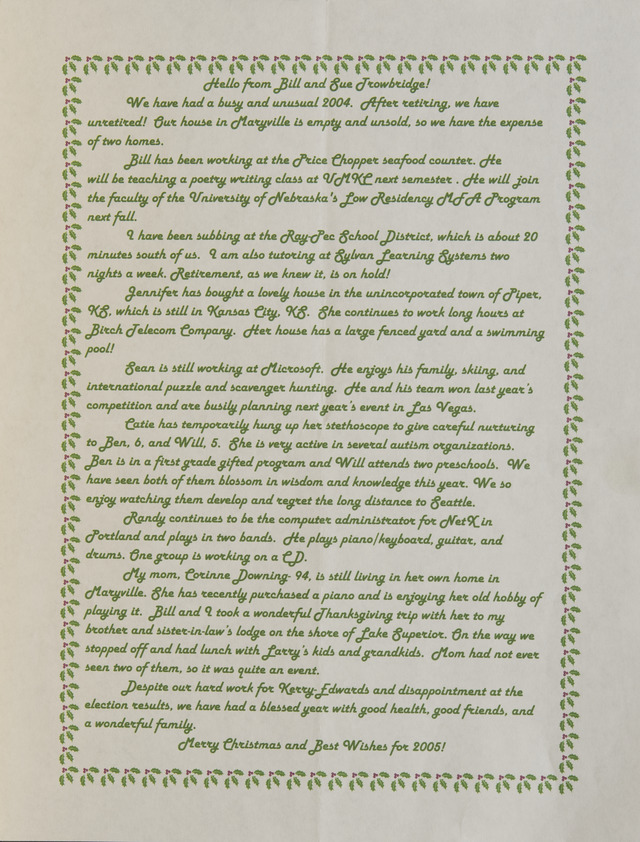 Hello from Bill and Sue Trowbridge!
We have had a busy and unusual 2004. After retiring, we have
unretired! Our house in Maryville is empty and unsold, so we have the expense
of two homes.
Bill has been working at the Price Chopper seafood counter. He
will be teaching a poetry writing class at UMKC next semester . He will join
the faculty of the University of Nebraska's Low Residency MFA Program
next fall.
I have been subbing at the Ray-Pec School District, which is about 20
minutes south of us. I am also tutoring at Sylvan Learning Systems two
nights a week. Retirement, as we knew it, is on hold!
Jennifer has bought a lovely house in the unincorporated town of Piper,
KS, which is still in Kansas City, KS. She continues to work long hours at
Birch Telecom Company. Her house has a large fenced yard and a swimming
pool!
Sean is still working at Microsoft. He enjoys his family, skiing, and
international puzzle and scavenger hunting. He and his team won last year's
competition and are busily planning next year's event in Las Vegas.
Catie has temporarily hung up her stethoscope to give careful nurturing
to Ben, 6, and Will, 5. She is very active in several autism organizations.
Ben is in a first grade gifted program and Will attends two preschools. We
have seen both of them blossom in wisdom and knowledge this year. We so
enjoy watching them develop and regret the long distance to Seattle.
Randy continues to be the computer administrator for NetX in
Portland and plays in two bands. He plays piano/keyboard, guitar, and
drums. One group is working on a CD.
My mom, Corinne Downing- 94, is still living in her own home in
Maryville. She has recently purchased a piano and is enjoying her old hobby of
playing it. Bill and I took a wonderful Thanksgiving trip with her to my
brother and sister-in-law's lodge on the shore of Lake Superior. On the way we
stopped off and had lunch with Larry's kids and grandkids. Mom had not ever
seen two of them, so it was quite an event.
Despite our hard work for Kerry-Edwards and disappointment at the
election results, we have had a blessed year with good health, good friends, and
a wonderful family.
Merry Christmas and Best Wishes for 2005!